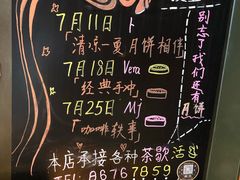 7月11日 卜
「清凉一夏月饼相伴
7月18日 Vera
「经典手冲
7月25日 Mj
「咖啡轶事
本店承接各种茶歇活动
TEL: 86767859
别忘了我们还有月饼